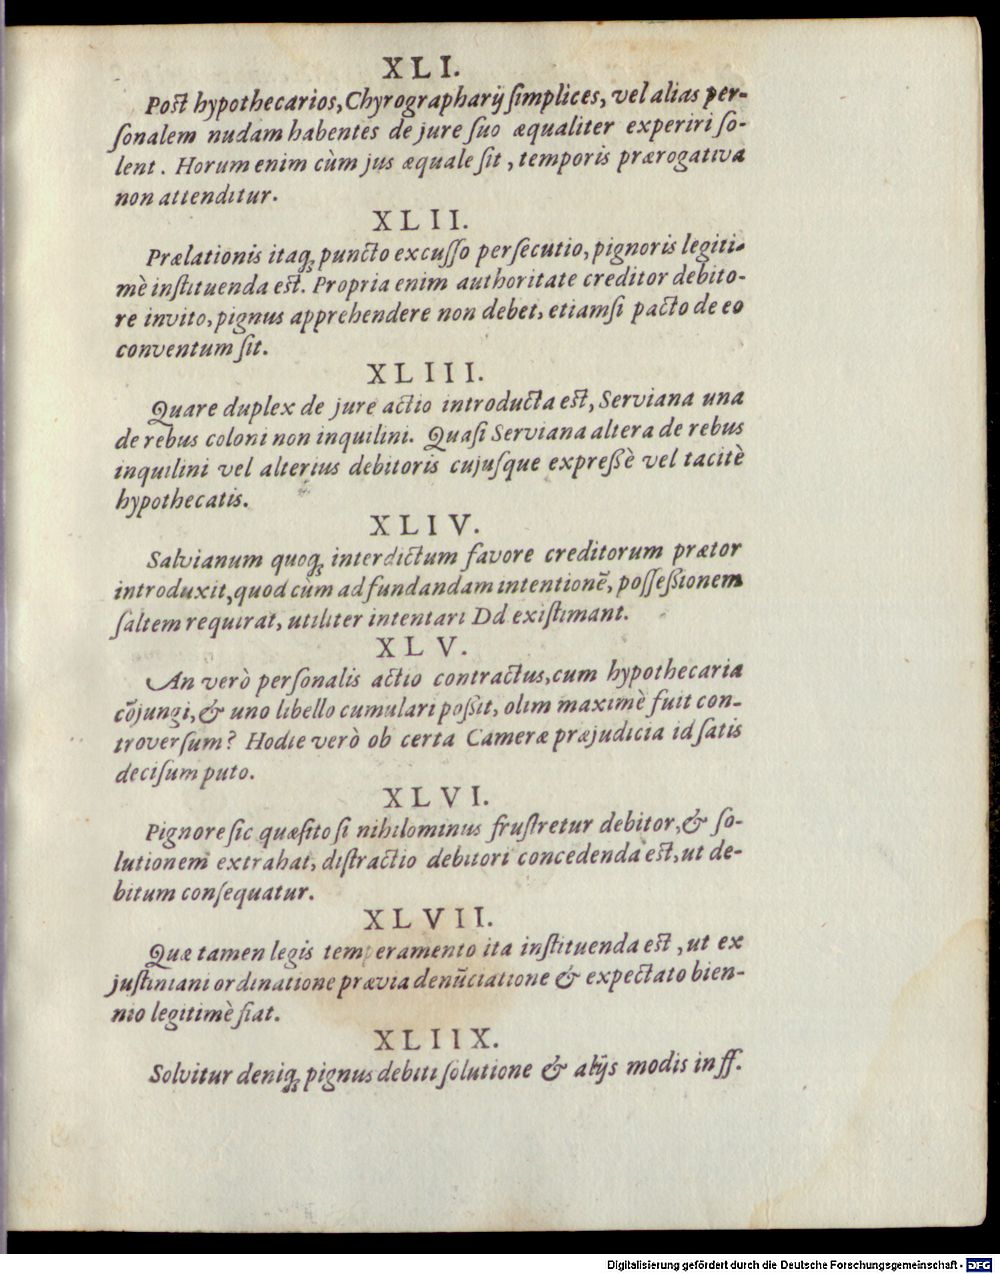 XLI.
Post hypothecarios, Chyrographarij ſimplices, vel alias per-
ſonalem nudam habentes de jure ſuo æqualiter experiri ſo-
lent. Horum enim cùm jus æquale ſit, temporis prærogativa
non attenditur.
XLII.
Prælationis itaq; puncto excuſſo perſecutio, pignoris legiti-
mè inſtituenda eſt. Propria enim authoritate creditor debito-
re invito, pignus apprehendere non debet, etiamſi pacto de eo
conventum ſit.
XLIII.
Quare duplex de jure actio introducta eſt, Serviana una
de rebus coloni non inquilini. Quaſi Serviana altera de rebus
inquilini vel alterius debitoris cujuſque expreßè vel tacitè
hypothecatis.
XLIV.
Salvianum quoq; interdictum favore creditorum prætor
introduxit, quod cùm ad fundandam intentionē, poſſeßionem
ſaltem requirat, utiliter intentari Dd exiſtimant.
XLV.
An verò perſonalis actio contractus, cum hypothecaria
cōjungi, & uno libello cumulari poßit, olim maximè fuit con-
troverſum? Hodie verò ob certa Cameræ præjudicia id ſatis
deciſum puto.
XLVI.
Pignore ſic quæſito ſi nihilominus fruſtretur debitor, & ſo-
lutionem extrahat, diſtractio debitori concedenda eſt, ut de-
bitum conſequatur.
XLVII.
Quæ tamen legis temperamento ita inſtituenda eſt, ut ex
juſtiniani ordinatione prævia denūciatione & expectato bien-
nio legitimè fiat.
XLIIX.
Solvitur deniq; pignus debiti ſolutione & alijs modis in ff.
Digitalisierung gefördert durch die Deutsche Forschungsgemeinschaft - DFG